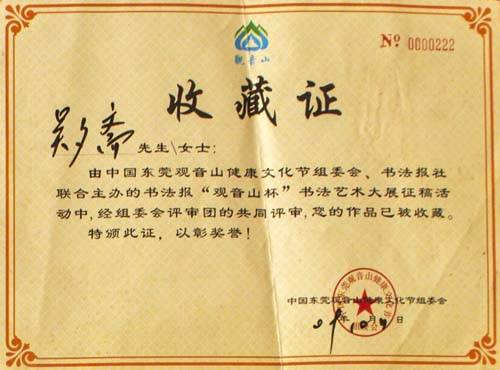 观音山
Nº 0000222
收藏证
先生\女士：
由中国东莞观音山健康文化节组委会、书法报社
联合主办的书法报“观音山杯”书法艺术大展征稿活
动中，经组委会评审团的共同评审，您的作品已被收藏。
特颁此证，以彰奖誉！
中国东莞观音山健康文化节组委会
年 月 日